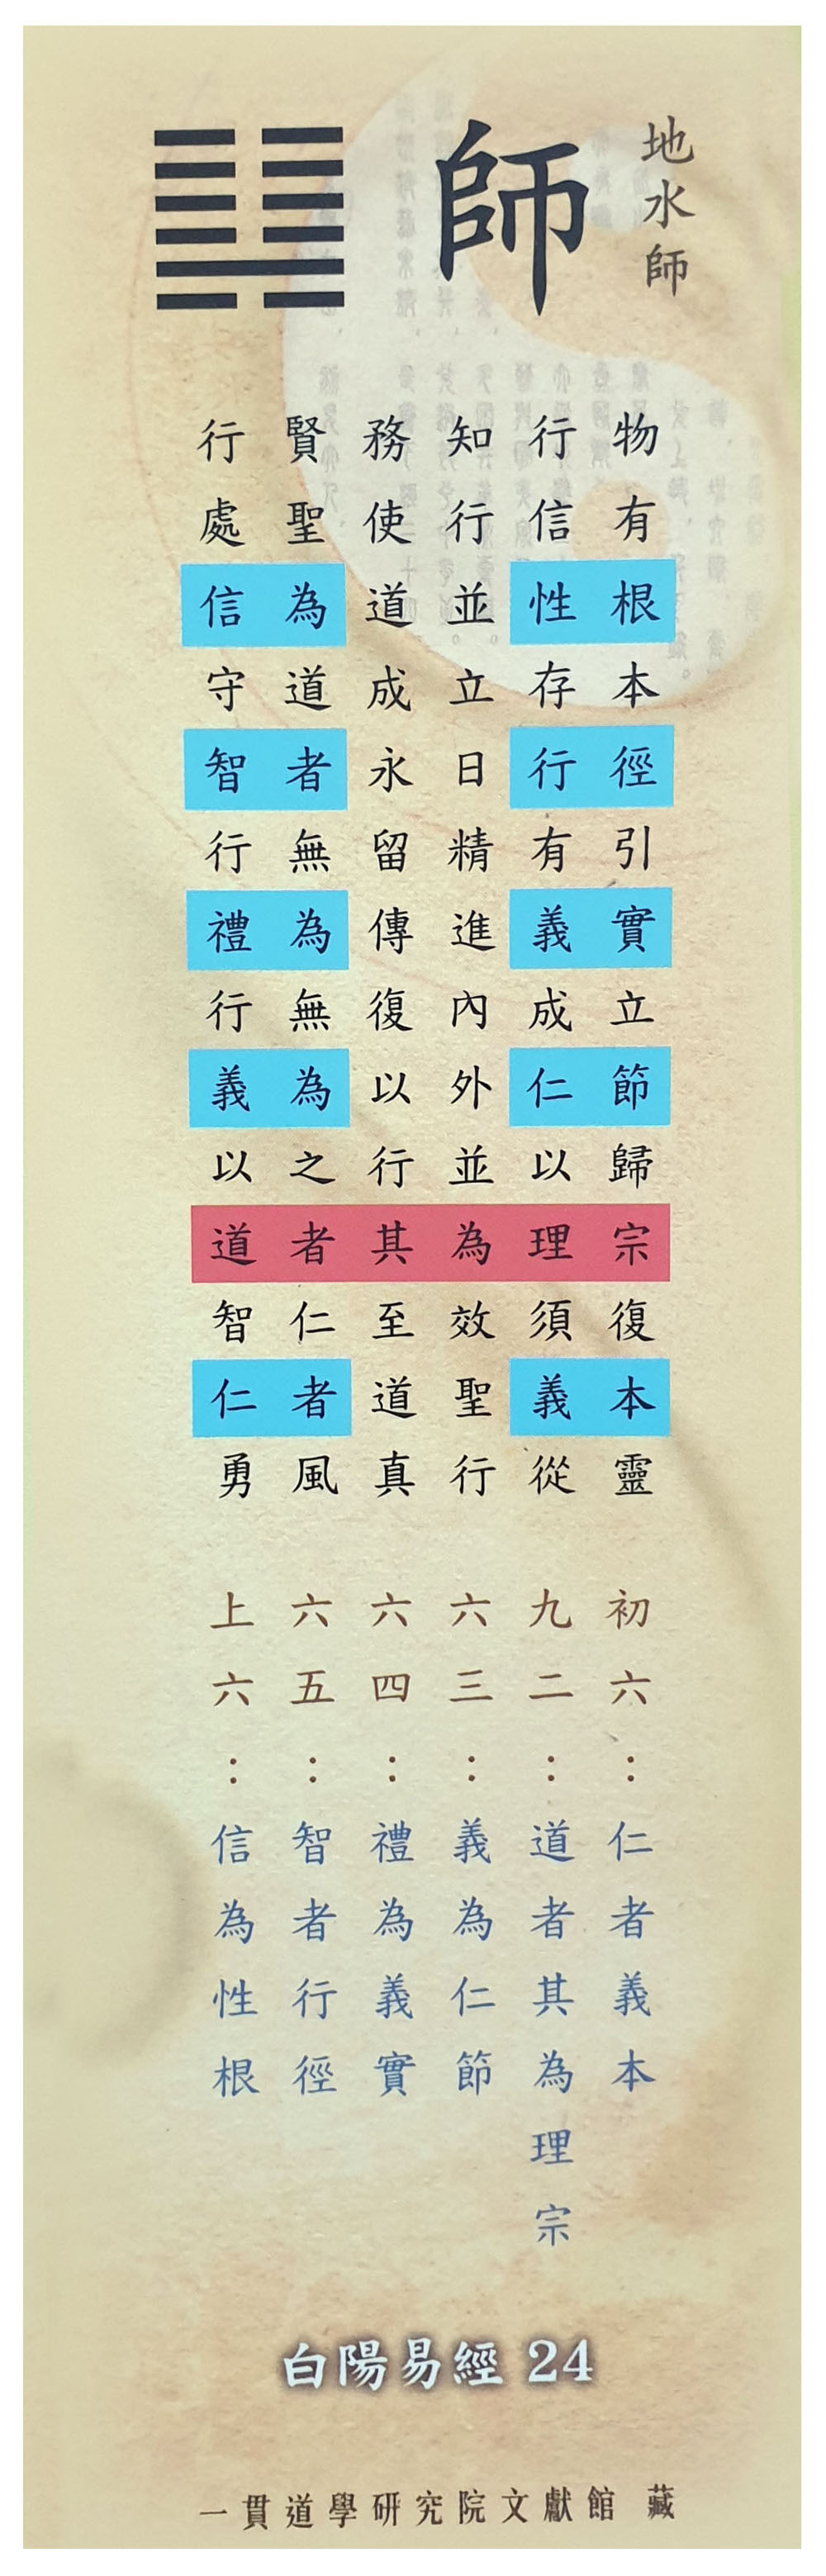 地水師
師
物有根本徑引實立節歸宗復本靈
行信性存行有義成仁以理須義從
知行並立日精進內外並為效聖行
務使道成永留傳復以行其至道真
賢聖為道者無為無為之者仁者風
行處信守智行禮行義以道智仁勇
初六：仁者義本
九二：道者其為理宗
六三：義為仁節
六四：禮為義實
六五：智者行徑
上六：信為性根
白陽易經 24
一貫道學研究院文獻館 藏